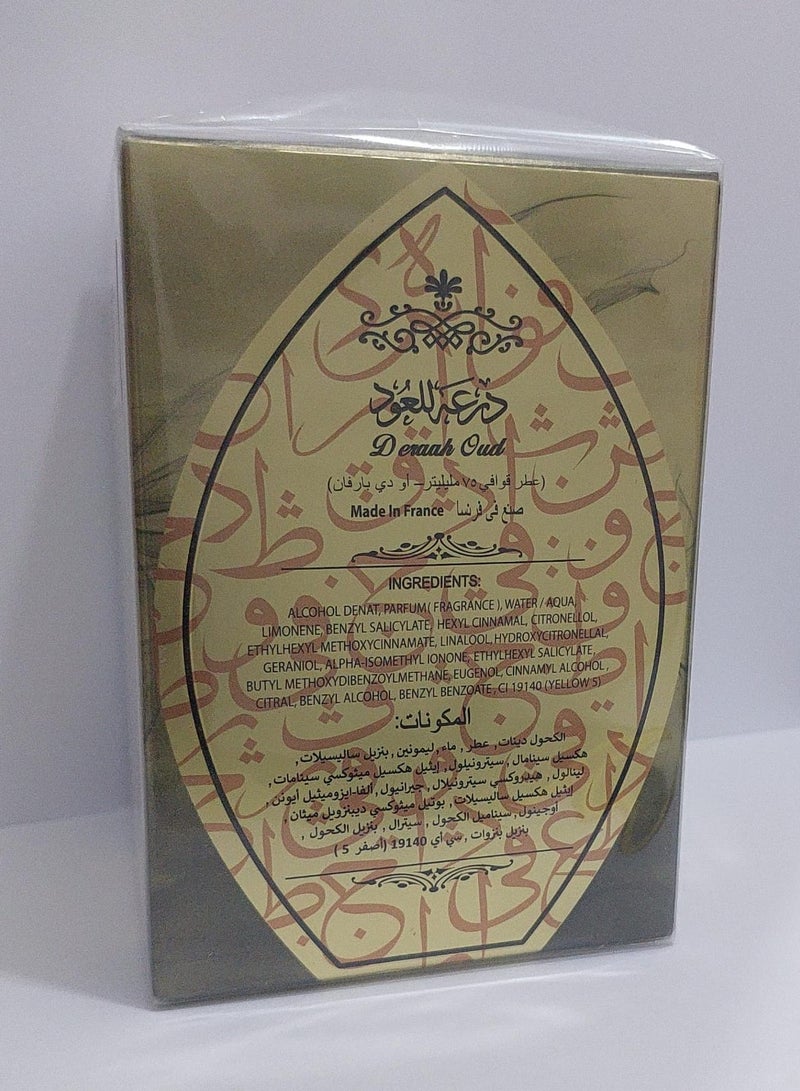 درعه للعود
Deraah Oud
(عطر قوافي ٧٥ مليليتر – أو دي بارفان)
Made In France صنع في فرنسا
INGREDIENTS:
ALCOHOL DENAT, PARFUM( FRAGRANCE ), WATER / AQUA,
LIMONENE, BENZYL SALICYLATE, HEXYL CINNAMAL, CITRONELLOL,
ETHYLHEXYL METHOXYCINNAMATE, LINALOOL, HYDROXYCITRONELLAL,
GERANIOL, ALPHA-ISOMETHYL IONONE, ETHYLHEXYL SALICYLATE,
BUTYL METHOXYDIBENZOYLMETHANE, EUGENOL, CINNAMYL ALCOHOL,
CITRAL, BENZYL ALCOHOL, BENZYL BENZOATE, CI 19140 (YELLOW 5)
المكونات:
الكحول دينات, عطر, ماء, ليمونين, بنزيل ساليسيلات,
هكسيل سينامال, سيترونيلول, إيثيل هكسيل ميثوكسي سينامات,
لينالول, هيدروكسي سيترونيلال, جيرانيول, ألفا-ايزوميثيل أيونن,
إيثيل هكسيل ساليسيلات, بوتيل ميثوكسي ديبنزويل ميثان,
أوجينول, سيناميل الكحول, سيترال, بنزيل الكحول,
بنزيل بنزوات, سي أي 19140 (أصفر 5)